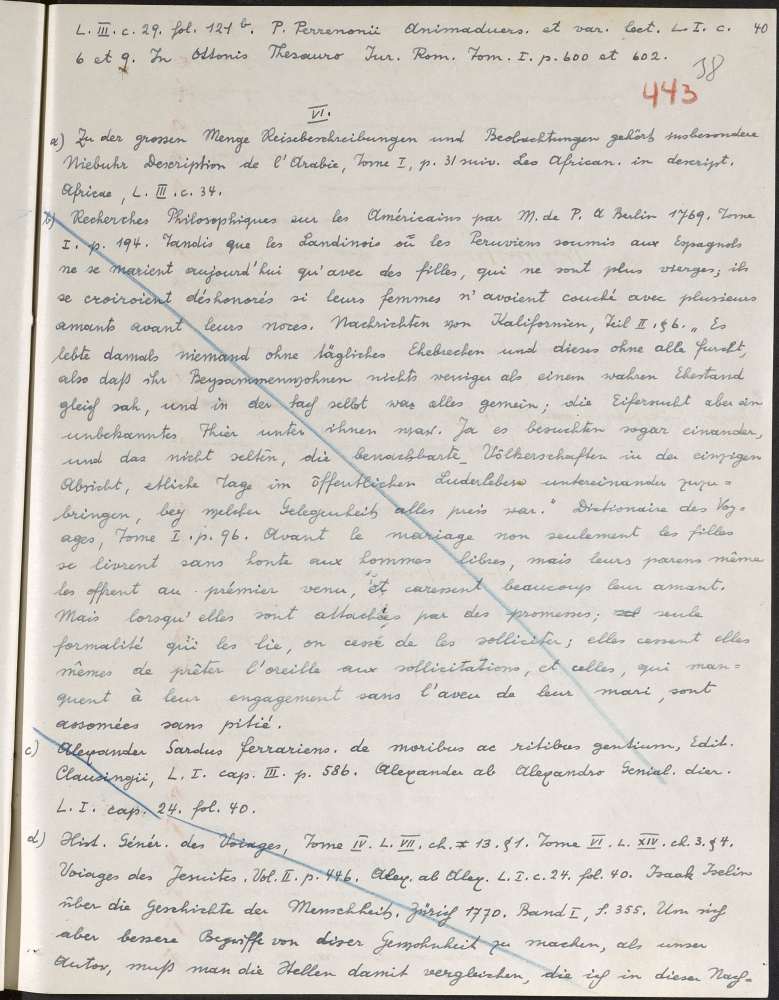 L. III. c. 29. fol. 121 b. P. Perrenonii Animaduers. et var. lect. L. I. c. 40
6 et 9. In Ottonis Thesauro Jur. Rom. Tom. I. p. 600 et 602.
38
443
VI.
a) Zu der grossen Menge Reisebeschreibungen und Beobachtungen gehört insbesondere
Niebuhr Description de l'Arabie, Tome I, p. 31 suiv. Leo African. in descript.
Africae, L. III. c. 34.
b) Recherches Philosophiques sur les Américains par M. de P. à Berlin 1769. Tome
I. p. 194. Tandis que les Landinois où les Peruviens soumis aux Espagnols
ne se marient aujourd'hui qu'avec des filles, qui ne sont plus vierges; ils
se croiroient déshonorés si leurs femmes n'avoient couché avec plusieurs
amants avant leurs noces. Nachrichten von Kalifornien, Teil II. §6. „Es
lebte damals niemand ohne tägliches Ehebrechen und dieses ohne alle Furcht,
also daß ihr Beysammenwohnen nichts weniger als einem wahren Ehestand
gleich sah, und in der Sach selbst war alles gemein; die Eifersucht aber ein
unbekanntes Thier unter ihnen war. Ja es besuchten sogar einander,
und das nicht selten, die benachbarte Völkerschaften in der einzigen
Absicht, etliche Tage im öffentlichen Luderleben untereinander zuzu=
bringen, bey welcher Gelegenheit alles preis war." Dictionaire des Voy-
ages, Tome I. p. 96. Avant le mariage non seulement les filles
se livrent sans honte aux hommes libres, mais leurs parens même
les offrent au prémier venu, et caressent beaucoup leur amant.
Mais lorsqu'elles sont attachées par des promesses; seule
formalité qui les lie, on cesse de les solliciter; elles cessent elles
mêmes de prêter l'oreille aux sollicitations, et celles, qui man=
quent à leur engagement sans l'aveu de leur mari, sont
assomées sans pitié.
c) Alexander Sardus ferrariens. de moribus ac ritibus gentium, Edit.
Clausingii, L. I. cap. III. p. 586. Alexander ab Alexandro Genial. dier.
L. I. cap. 24. fol. 40.
d) Hist. Génér. des Voiages, Tome IV. L. VII. ch. 13. §1. Tome VI. L. XIV. ch. 3. §4.
Voiages des Jesuites. Vol. II. p. 446. Alex. ab Alex. L. I. c. 24. fol. 40. Isaak Iselin
über die Geschichte der Menschheit. Zürich 1770. Band I, S. 355. Um sich
aber bessere Begriffe von diser Gewohnheit zu machen, als unser
Autor, muß man die Stellen damit vergleichen, die ich in dieser Nach=